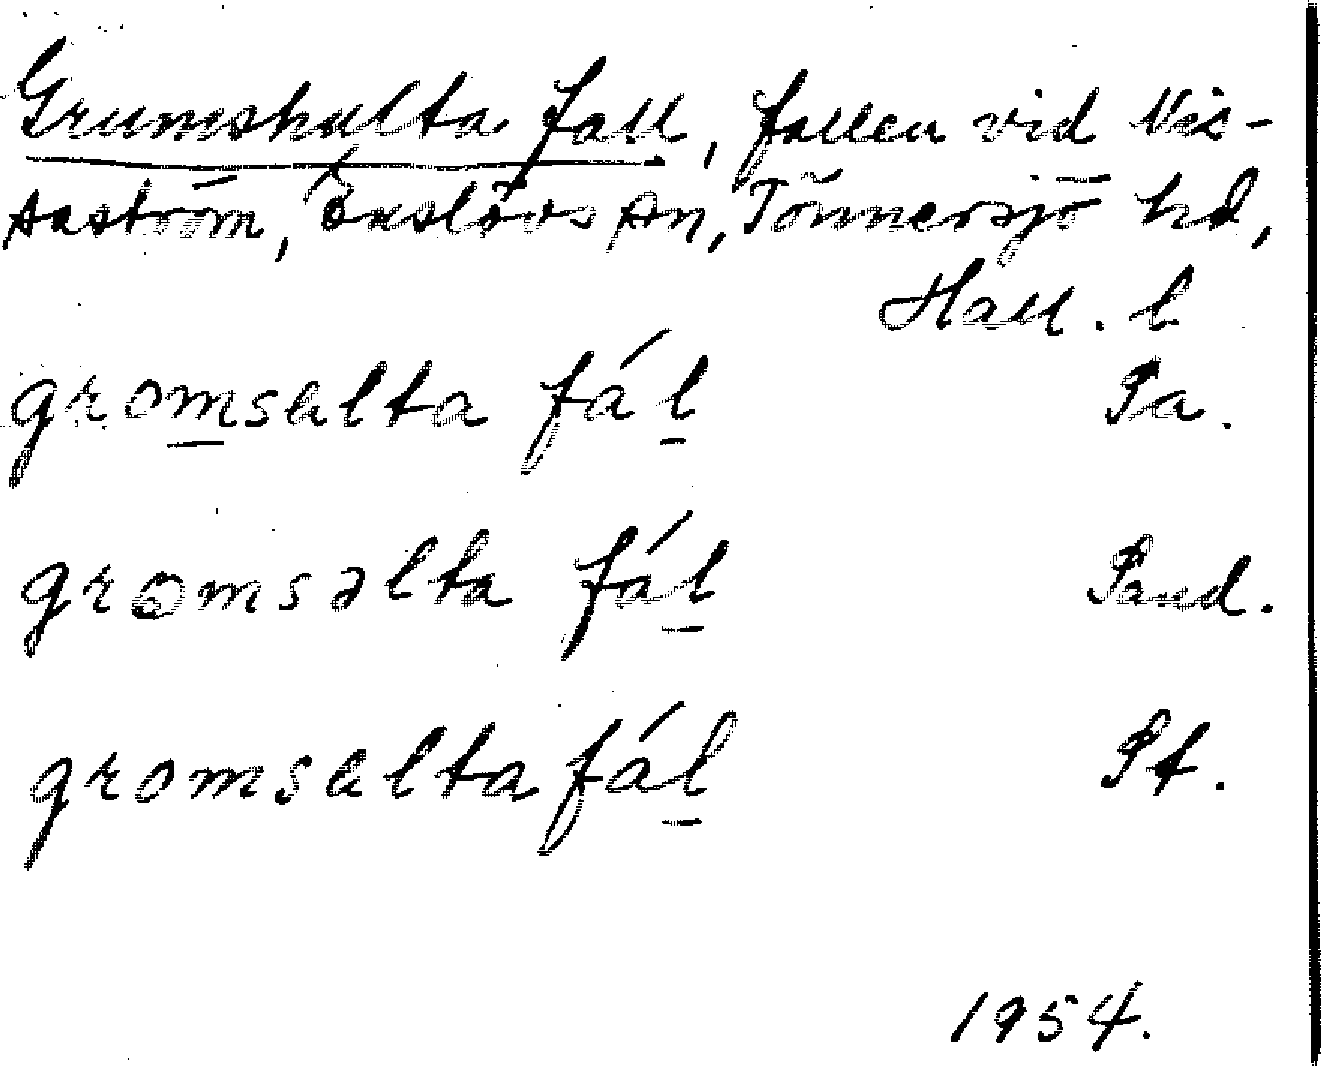 Grumshulta fall, fallen vid Nis-
saström, Enslövs sn, Tönnersjö hd,
Hall. l.
gromsalta fál Pa.
gromsəlta fál Pand.
gromsaltafál Pf.
1954.